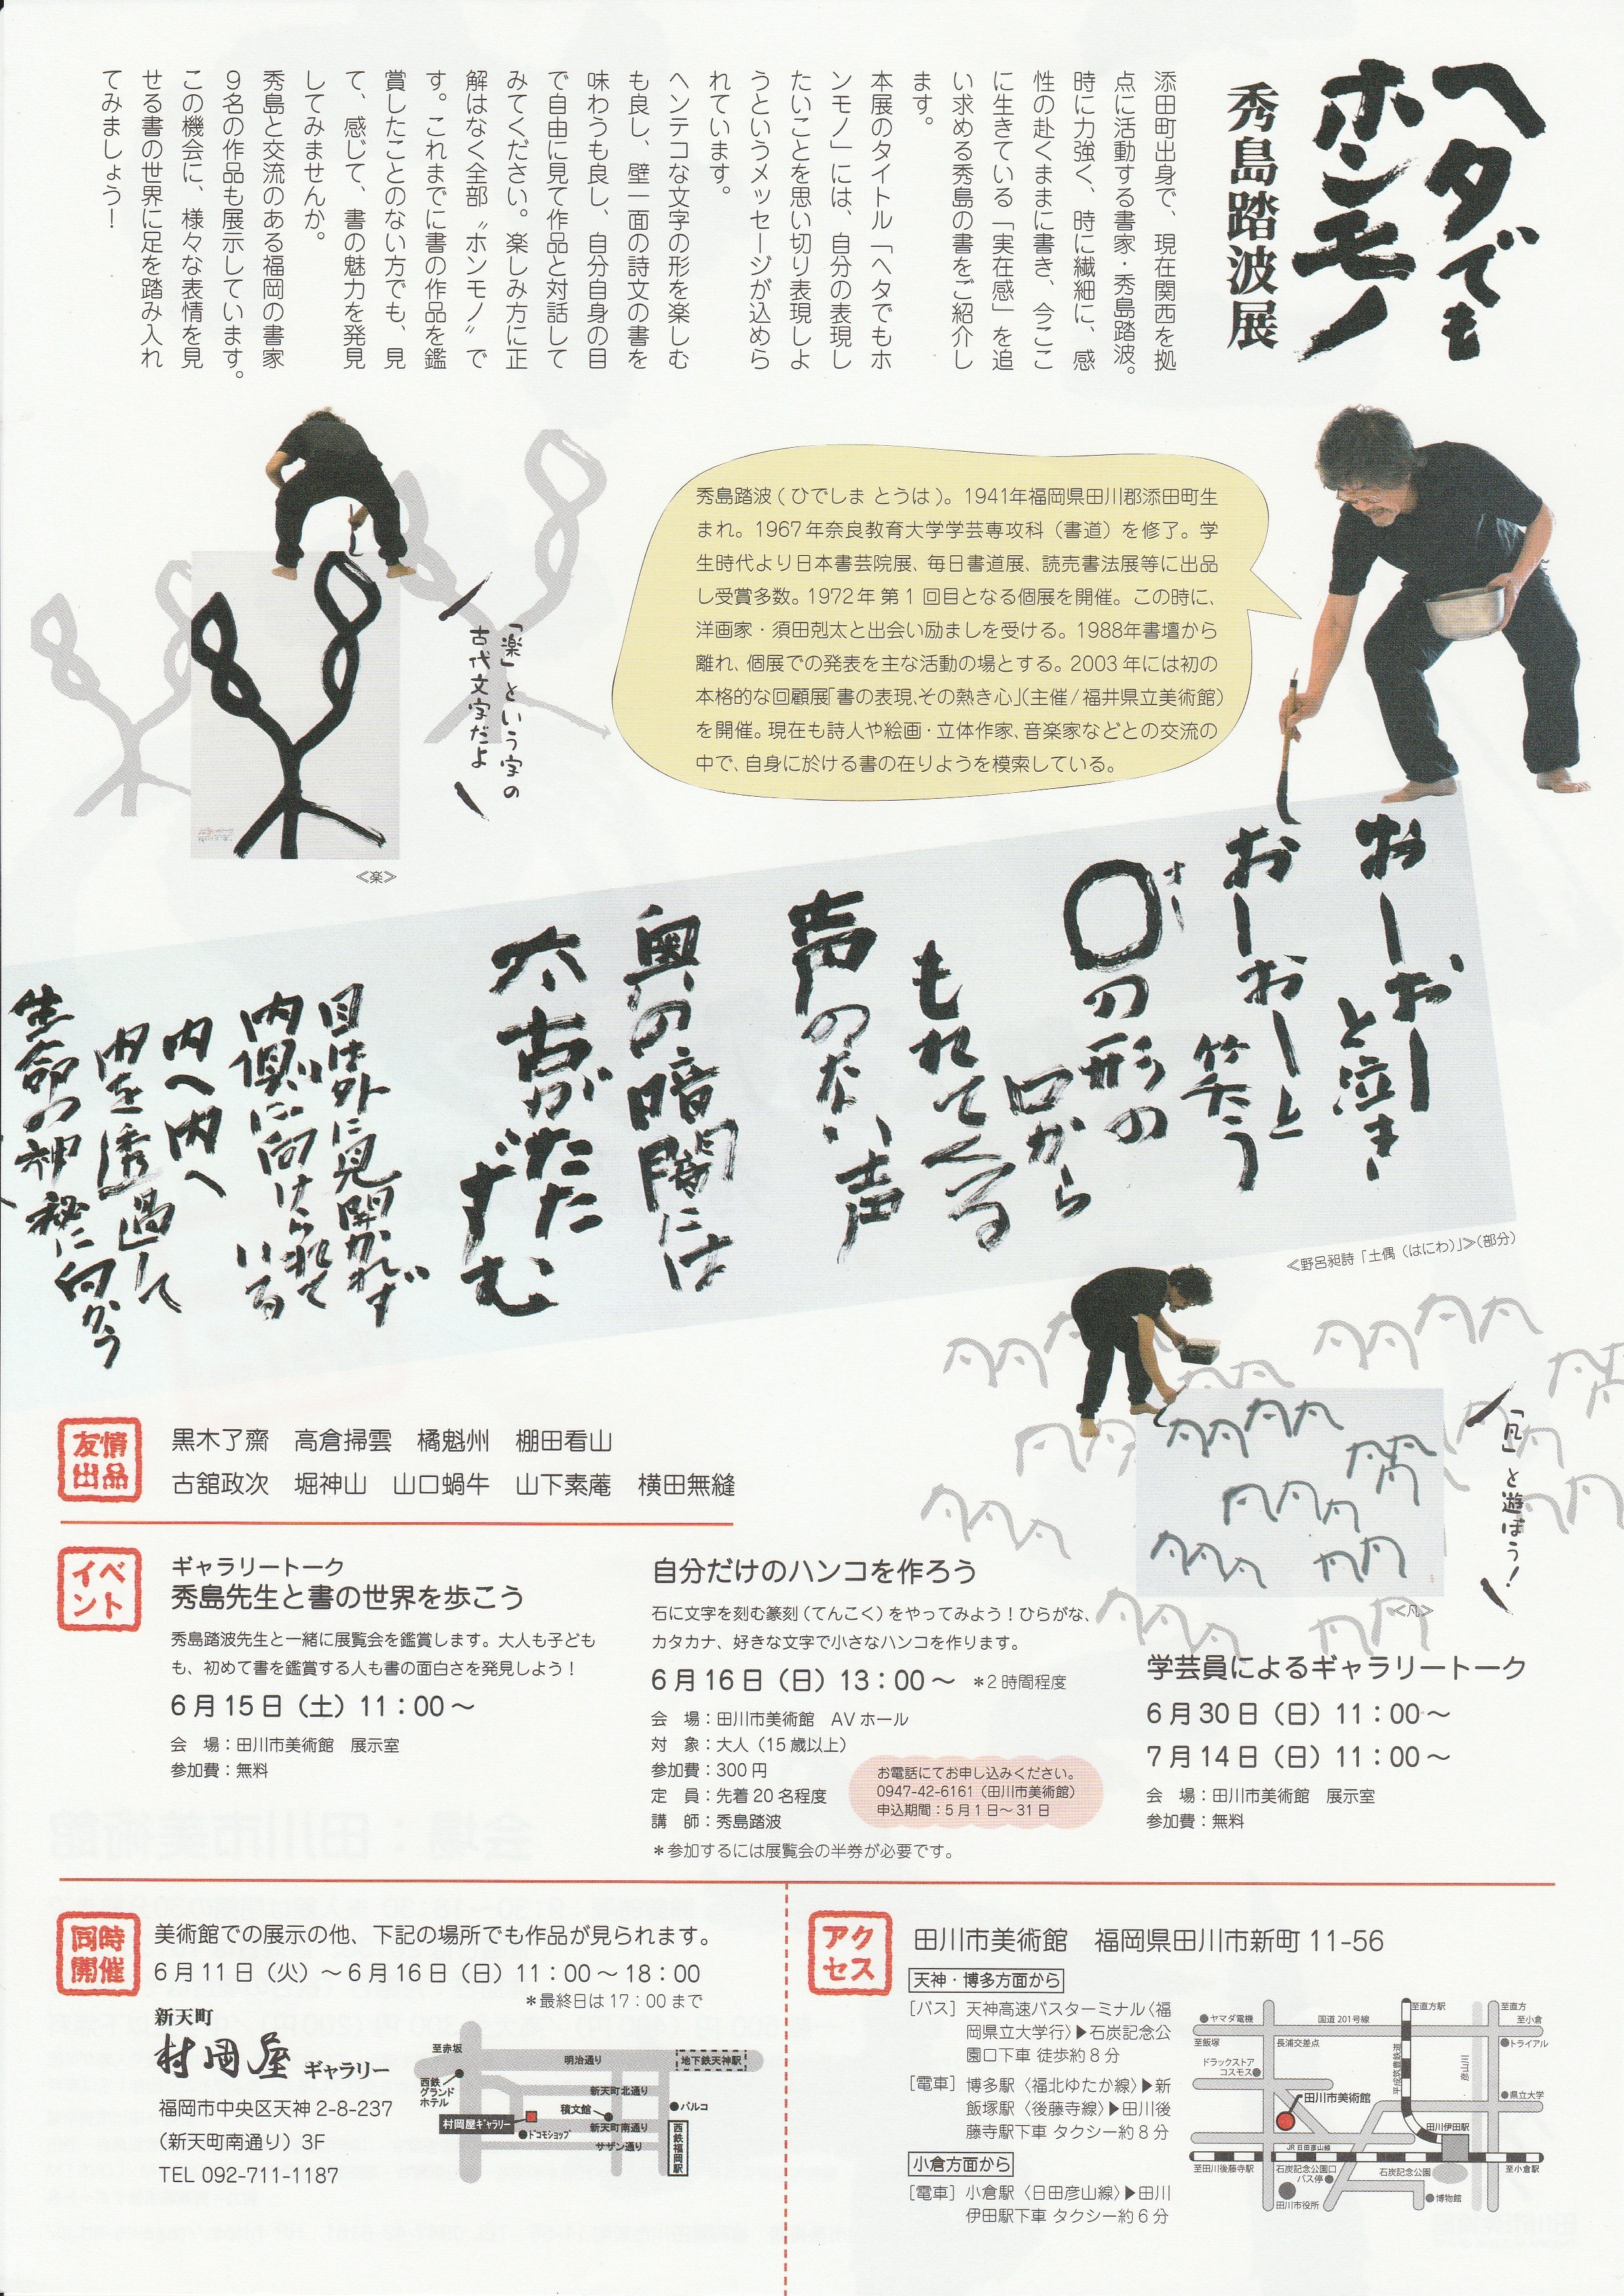 ヘタでも
ホンモノ
秀島踏波展
添田町出身で、現在関西を拠
点に活動する書家・秀島踏波。
時に力強く、時に繊細に、感
性の赴くままに書き、今ここ
に生きている「実在感」を追
い求める秀島の書をご紹介し
ます。
本展のタイトル「ヘタでもホ
ンモノ」には、自分の表現し
たいことを思い切り表現しよ
うというメッセージが込めら
れています。
ヘンテコな文字の形を楽しむ
も良し、壁一面の詩文の書を
味わうも良し、自分自身の目
で自由に見て作品と対話して
みてください。楽しみ方に正
解はなく全部〝ホンモノ〟で
す。これまでに書の作品を鑑
賞したことのない方でも、見
て、感じて、書の魅力を発見
してみませんか。
秀島と交流のある福岡の書家
9名の作品も展示しています。
この機会に、様々な表情を見
せる書の世界に足を踏み入れ
てみましょう！
秀島踏波(ひでしま とうは)。1941年福岡県田川郡添田町生
まれ。1967年奈良教育大学学芸専攻科（書道）を修了。学
生時代より日本書芸院展、毎日書道展、読売書法展等に出品
し受賞多数。1972年 第1 回目となる個展を開催。この時に、
洋画家・須田剋太と出会い励ましを受ける。1988年書壇から
離れ、個展での発表を主な活動の場とする。2003年には初の
本格的な回顧展「書の表現、その熱き心」(主催/福井県立美術館)
を開催。現在も詩人や絵画・立体作家、音楽家などとの交流の
中で、自身に於ける書の在りようを模索している。
「楽」という字の
古代文字だよ
≪楽≫
おーおー
と泣き
おーおーと
笑う
オー
〇の形の
口から
もれてくる
声のない声
奥の暗闇には
不古がたた
ずむ
目は外に見開かれず
内側に向けられて
いる
内へ内へ
内を透過して
生命の神秘に向かう
≪野呂昶詩「土偶（はにわ）」≫(部分)
「凡」と遊ぼう！
≪凡≫
友情
出品
黒木了齋　高倉掃雲　橘魁州　棚田看山
古舘政次　堀神山　山口蝸牛　山下素菴　横田無縫
イベ
ント
ギャラリートーク
秀島先生と書の世界を歩こう
秀島踏波先生と一緒に展覧会を鑑賞します。大人も子ども
も、初めて書を鑑賞する人も書の面白さを発見しよう！
6月15日（土）11：00～
会　場：田川市美術館　展示室
参加費：無料
自分だけのハンコを作ろう
石に文字を刻む篆刻（てんこく）をやってみよう！ひらがな、
カタカナ、好きな文字で小さなハンコを作ります。
6月16日（日）13：00～　＊2時間程度
会　場：田川市美術館　AVホール
対　象：大人（15歳以上）
参加費：300円
定　員：先着20名程度
講　師：秀島踏波
＊参加するには展覧会の半券が必要です。
お電話にてお申し込みください。
0947-42-6161（田川市美術館）
申込期間：5月1日～31日
学芸員によるギャラリートーク
6月30日（日）11：00～
7月14日（日）11：00～
会　場：田川市美術館　展示室
参加費：無料
同時
開催
美術館での展示の他、下記の場所でも作品が見られます。
6月11日（火）～6月16日（日）11：00～18：00
＊最終日は17：00まで
新天町
村岡屋 ギャラリー
福岡市中央区天神2-8-237
（新天町南通り）3F
TEL 092-711-1187
至赤坂
明治通り
地下鉄天神駅
西鉄
グランド
ホテル
新天町北通り
積文館
パルコ
村岡屋ギャラリー
新天町南通り
ドコモショップ
サザン通り
西鉄福岡駅
アク
セス
田川市美術館　福岡県田川市新町11-56
天神・博多方面から
［バス］天神高速バスターミナル〈福
岡県立大学行〉▶石炭記念公
園口下車 徒歩約8分
［電車］博多駅〈福北ゆたか線〉▶新
飯塚駅〈後藤寺線〉▶田川後
藤寺駅下車 タクシー約8分
小倉方面から
［電車］小倉駅〈日田彦山線〉▶田川
伊田駅下車 タクシー約6分
至直方駅
至直方
ヤマダ電機
国道201号線
至小倉
至飯塚
長浦交差点
トライアル
ドラックストア
コスモス
平成筑豊鉄道
彦山川
田川市美術館
県立大学
田川伊田駅
JR日田彦山線
至田川後藤寺駅
石炭記念公園口
バス停
石炭記念公園
至小倉駅
田川市役所
博物館